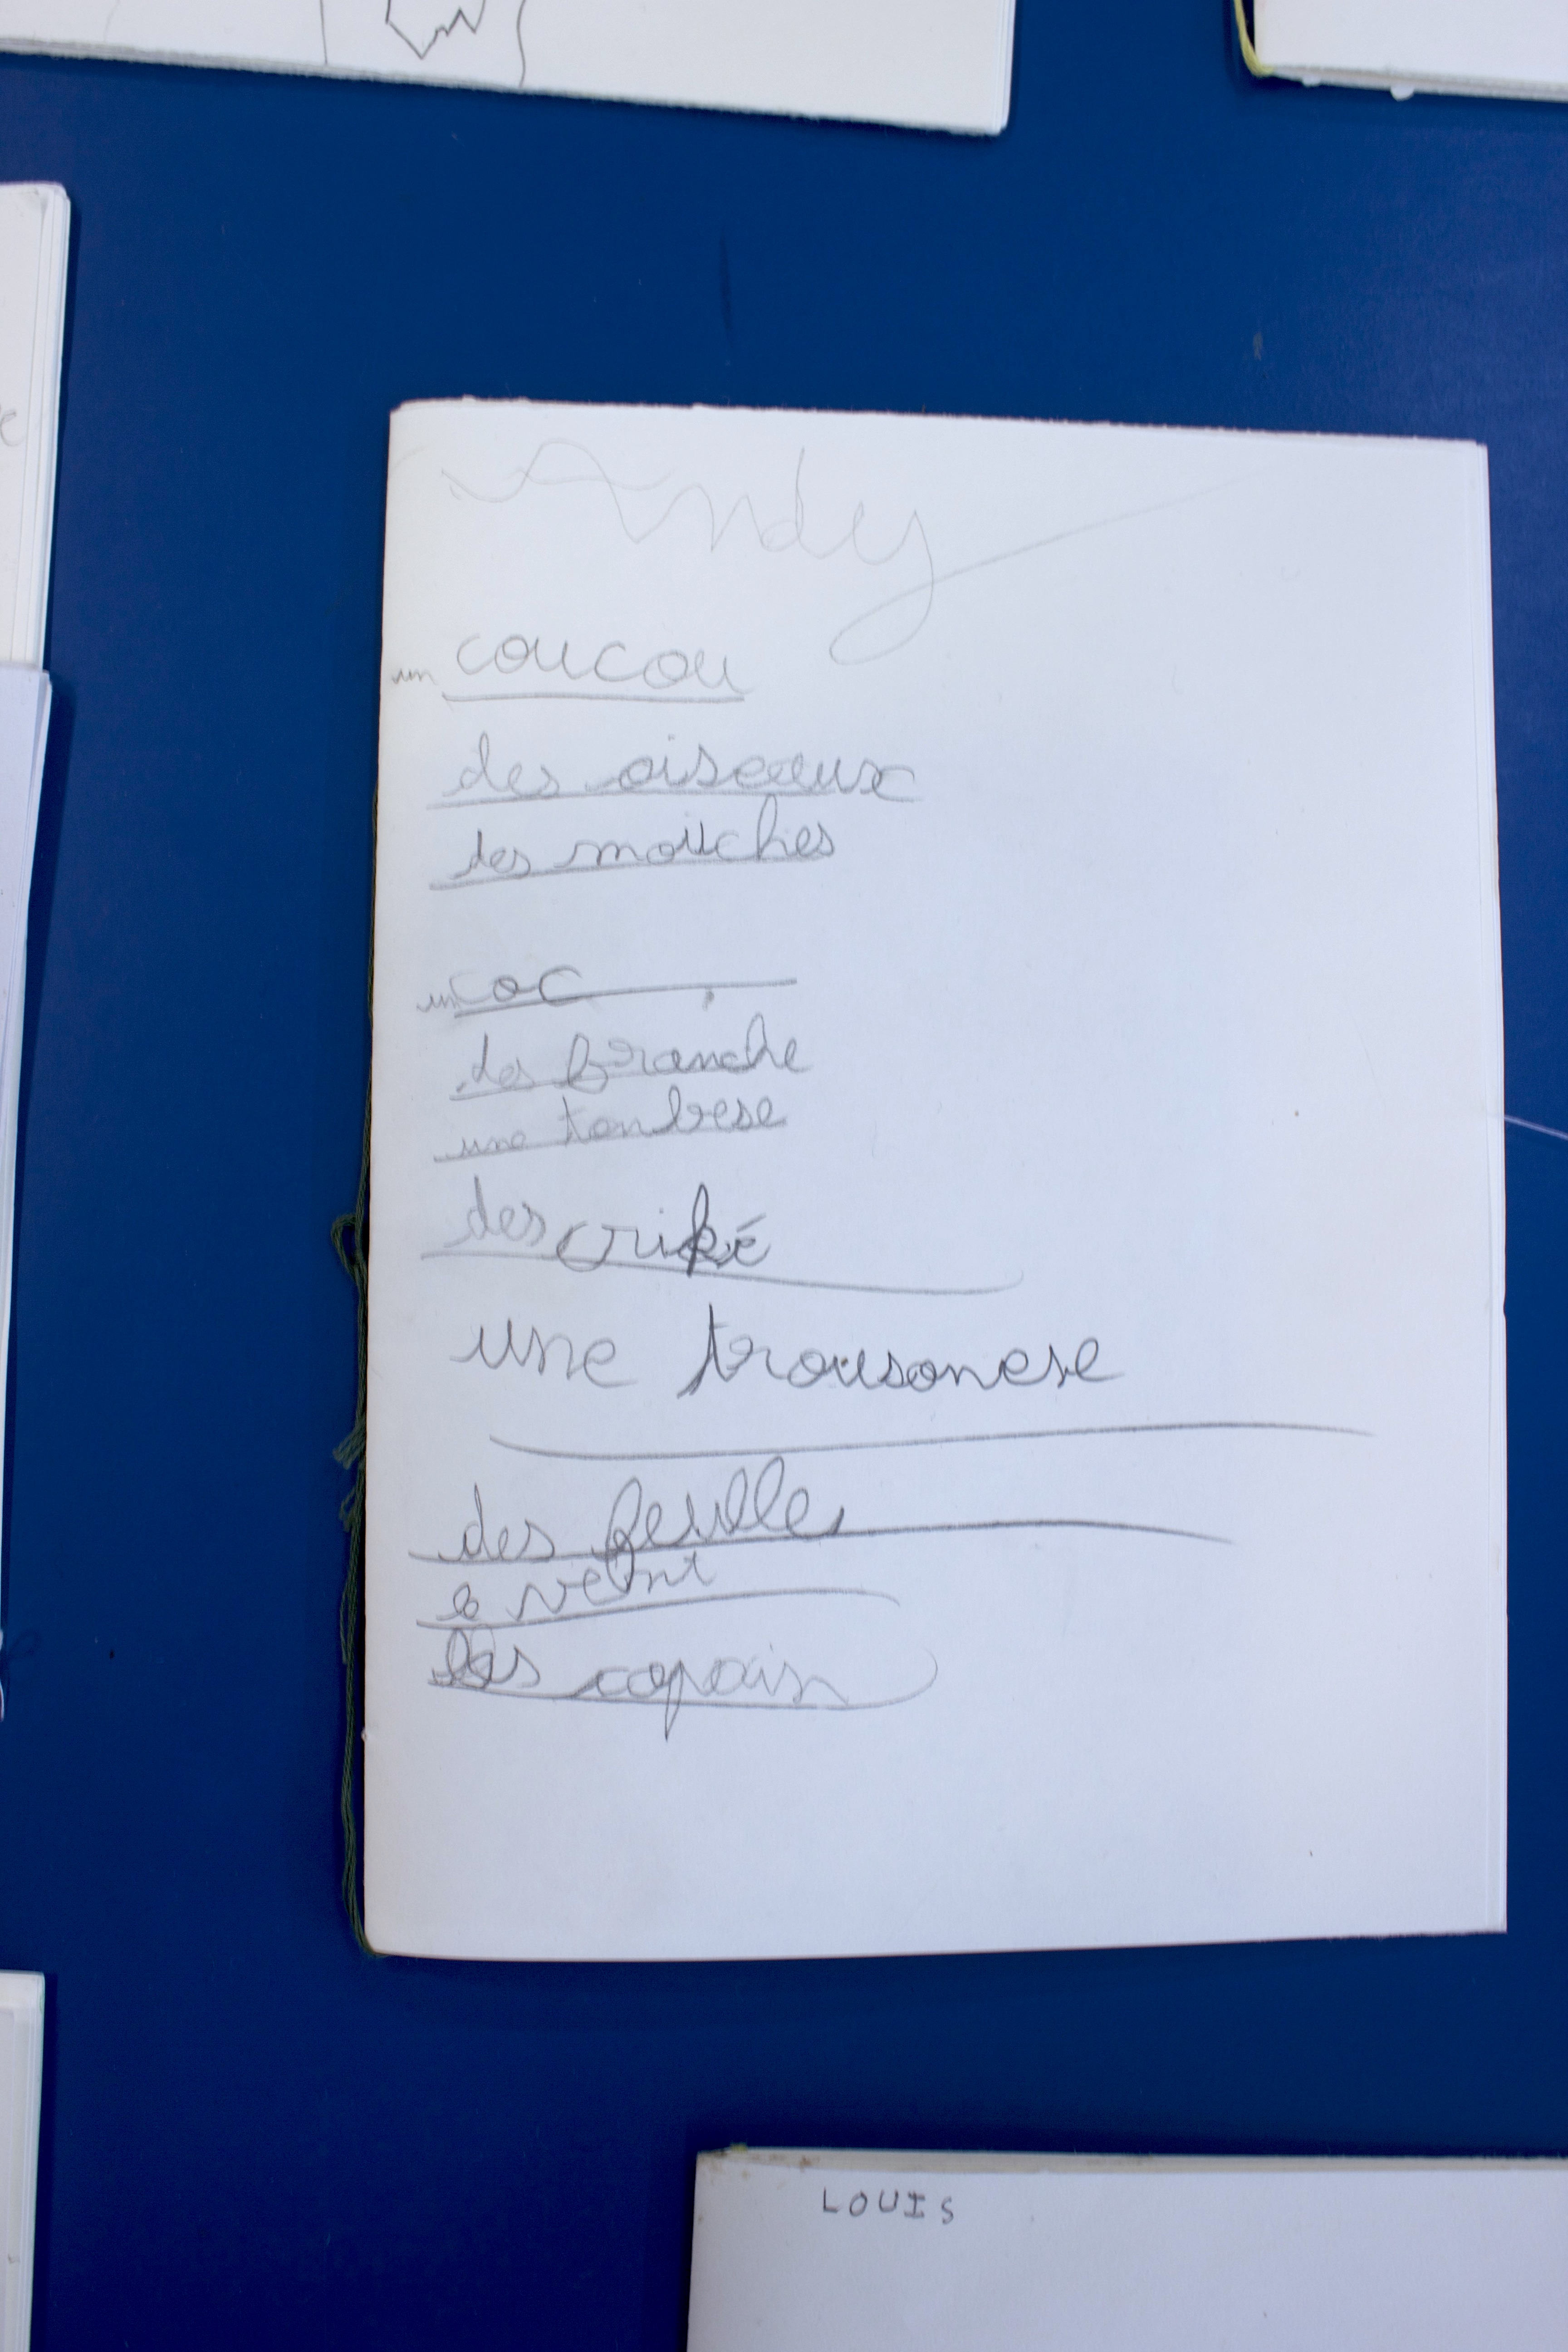 Andy
un coucou
des oiseaux
des mouches
un coc
des branche
une tonbese
des criké
une trousonese
des feulle
le veint
les copain
LOUIS